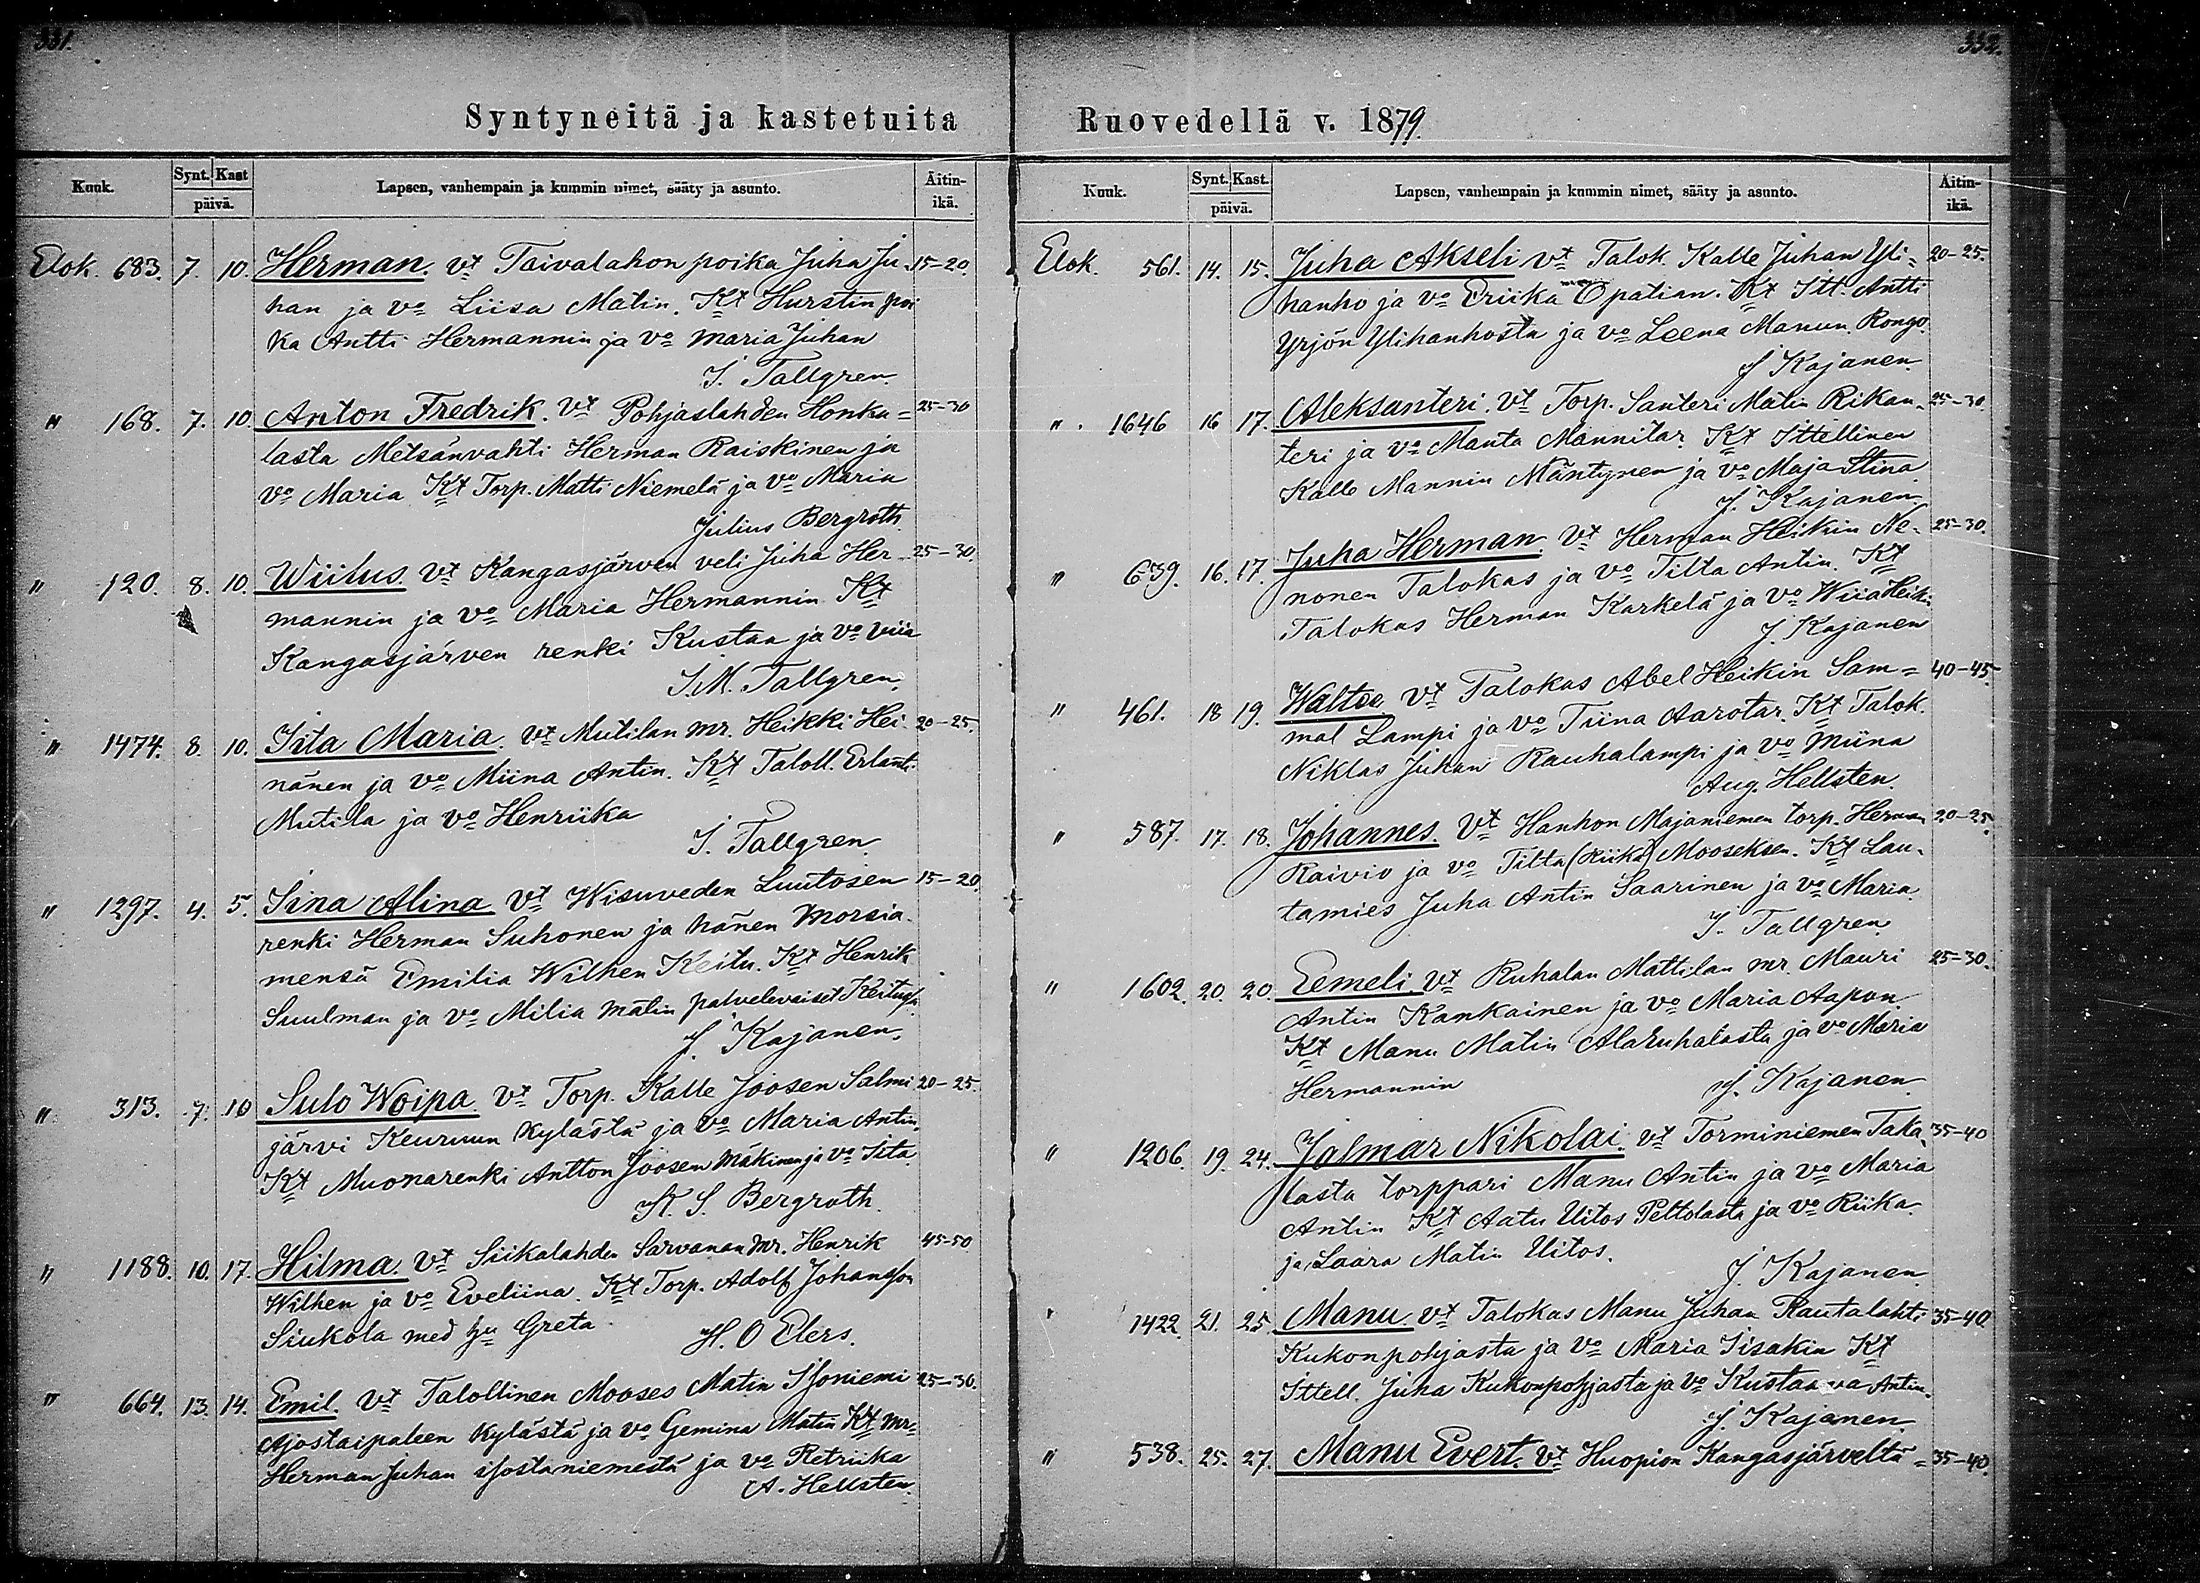 331.
Syntyneitä ja kastetuita
Kuuk. Synt. Kast päivä. Lapsen, vanhempain ja kummin nimet, sääty ja asunto. Äitin-ikä.
Elok. 683. 7. 10. Herman. vt Taivalahon poika Juha Ju- 15-20
han ja vo Liisa Matin. Kt Hurstin poi
ka Antti Hermannin ja vo Maria Juhan
J. Tallgren.
" 168. 7. 10 Anton Fredrik. vt Pohjaslahden Honka= 25-30
lasta Metsänvahti Herman Raiskinen ja
vo Maria Kt Torp. Matti Niemelä ja vo Maria
Julius Bergroth.
" 120. 8. 10. Wiitus. vt Kangasjärven veli Juha Her- 25-30.
mannin ja vo Maria Hermannin Kt
Kangasjärven renki Kustaa ja vo Viia
J.M. Tallgren.
" 1474. 8. 10. Iita Maria. vt Mutilan mr. Heikki Hei- 20-25.
nänen ja vo Miina Antin. Kt Taloll. Erlant.
Mutila ja vo Henriika
J. Tallgren
" 1297. 4. 5. Iina Alina vt Wisuveden Luutosen 15-20.
renki Herman Suhonen ja hänen morsia-
mensä Emilia Wilhen Keitu. Kt Henrik
Suulman ja vo Milia Matin palvelevaiset
J. Kajanen.
" 313. 7. 10 Sulo Woipa. vt Torp. Kalle Joosen Salmi 20-25.
järvi Keuruun kylästä ja vo Maria Antin.
Kt Muonarenki Antton Joosen Mäkinen ja vo Iita
K. S. Bergroth.
" 1188. 10. 17. Hilma. vt Siikalahden Sarvanan mr. Henrik 45-50
Wilhen ja vo Eveliina. Kt Torp. Adolf Johansson
Siukola med hu Greta
H. O Elers.
" 664. 13. 14. Emil. vt Talollinen Mooses Matin Isoniemi 25-30.
Ajostaipaleen kylästä ja vo Gemina Matin Kt mr.
Herman Juhan isostaniemestä ja vo Retriika
A. Hellsten.
332.
Ruovedellä v. 1879.
Kuuk. Synt. Kast. päivä. Lapsen, vanhempain ja kummin nimet, sääty ja asunto. Äitin-ikä.
Elok. 561. 14. 15. Juha Akseli vt Talok. Kalle Juhan Yli= 20-25.
hanho ja vo Eriika Opatian. Kt Itt. Antti
Yrjön Ylihanhosta ja vo Leena Manun Rongo.
J Kajanen.
" 1646 16 17. Aleksanteri. vt Torp. Santeri Matin Rikan- 25-30.
teri ja vo Manta Mannitar. Kt Ittellinen
Kalle Mannin Mäntynen ja vo Maja Stina
J. Kajanen.
" 639. 16. 17. Juha Herman. vt Herman Heikin Ne- 25-30.
nonen Talokas ja vo Tilta Antin. Kt
Talokas Herman Karkelä ja vo Wiia Heik.
J. Kajanen
" 461. 18 19. vt Talokas Abel Heikin Sam= 40-45.
mal Lampi ja vo Tiina Aarotar. Kt Talok.
Niklas Juhan Rauhalampi ja vo Miina
Aug. Hellsten.
" 587. 17. 18. Johannes. vt Hanhon Majaniemen torp. Herman 20-25.
Raivio ja vo Tilta (Riika) Mooseksen. Kt Lau-
tamies Juha Antin Saarinen ja vo Maria.
J. Tallgren.
" 1602. 20. 20. Eemeli. vt Ruhalan Mattilan mr. Mauri 25-30.
Antin Kankainen ja vo Maria Aapon.
Kt Manu Matin Alaruhalasta ja vo Maria
Hermannin J. Kajanen
" 1206. 19. 24. Jalmar Nikolai. vt Torminiemen Taka- 35-40
lasta torppari Manu Antin ja vo Maria
Antin Kt Aatu Uitos Peltolasta ja vo Riika
ja Saara Matin Uitos.
J. Kajanen
" 1422. 21. 25. Manu. vt Talokas Manu Juhan Rautalahti 35-40
Kukonpohjasta ja vo Maria Iisakin Kt
Ittell. Juha Kukonpohjasta ja vo Kustaava Antin.
J. Kajanen
" 538. 25. 27. Manu Evert. vt Huopion Kangasjärveltä= 35-40.